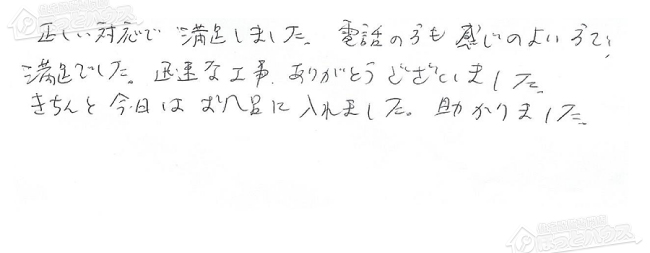 正しい対応で満足しました。電話の方も感じのよい方で、
満足でした。迅速な工事、ありがとうございました。
きちんと今日はお風呂に入れました。助かりました。